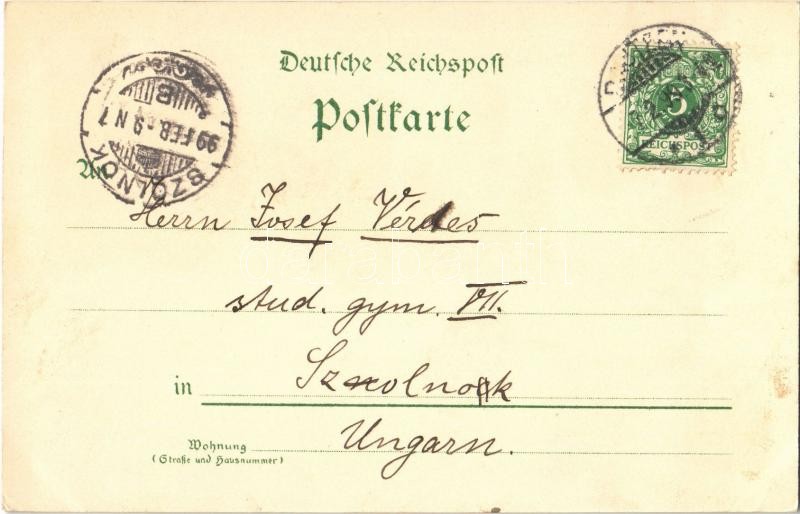 Deutsche Reichspost
Postkarte
5
REICHSPOST
SZOLNOK
99 FEB. 9 N 7
An
Herrn Josef Vérdes
stud. gym. VII.
in Szolnok
Ungarn.
Wohnung
(Straße und Hausnummer)